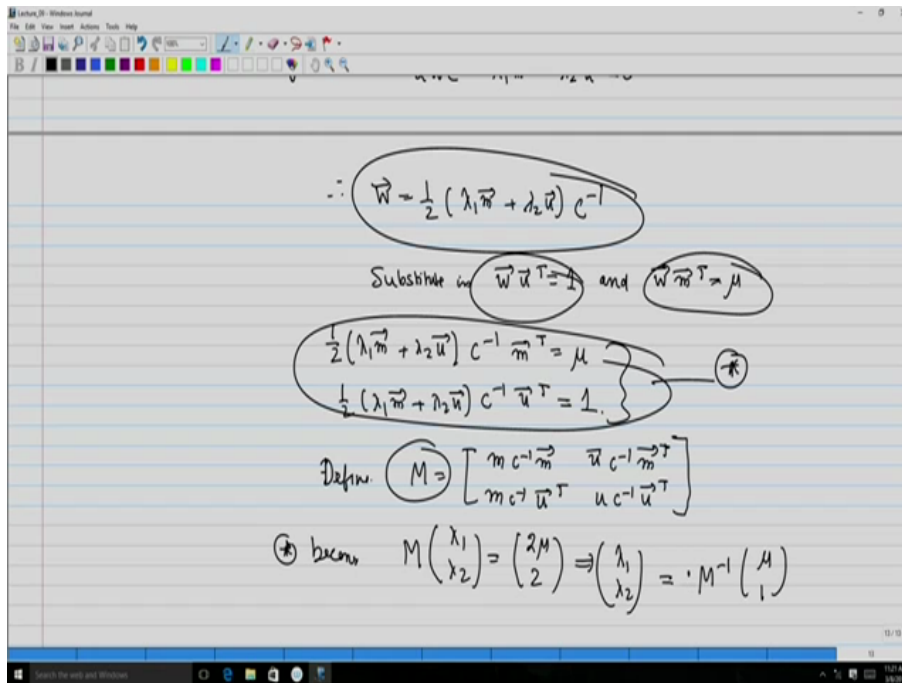 Lecture_09 - Windows Journal
File Edit View Insert Actions Tools Help
B I
∴ w⃗ = 1/2 ( λ₁m⃗ + λ₂u⃗ ) C⁻¹
Substitute in w⃗ u⃗ᵀ = 1 and w⃗ m⃗ᵀ = μ
1/2 ( λ₁m⃗ + λ₂u⃗ ) C⁻¹ m⃗ᵀ = μ
1/2 ( λ₁m⃗ + λ₂u⃗ ) C⁻¹ u⃗ᵀ = 1. } — *
Define. M = [ m C⁻¹ m⃗ u⃗ C⁻¹ m⃗ᵀ
m C⁻¹ u⃗ᵀ u C⁻¹ u⃗ᵀ ]
* becom M ( λ₁ λ₂ ) = ( 2μ 2 ) ⇒ ( λ₁ λ₂ ) = · M⁻¹ ( μ 1 )
13 / 13
13
Search the web and Windows